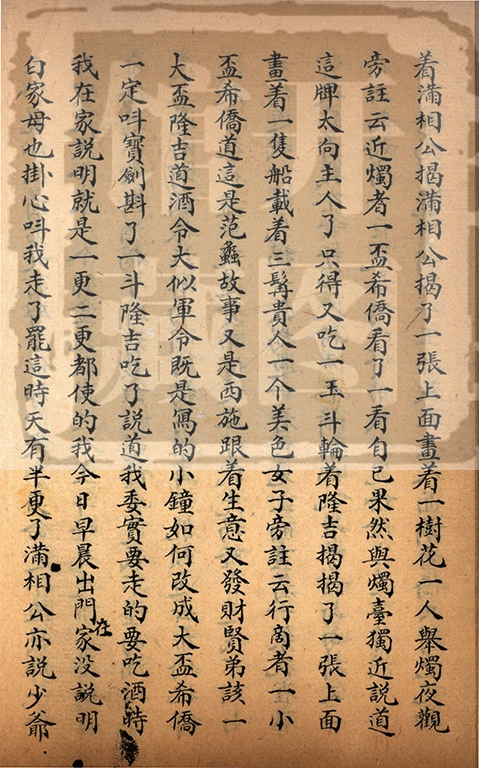 着滿相公揭滿相公揭了一張上面畫着一樹花一人舉燭夜觀
旁註云近燭者一盃希僑看了一看自己果然與燭臺獨近説道
這牌太向主人了只得又吃一玉斗輪着隆吉揭揭了一張上面
畫着一隻船載着三髯貴人一个美色女子旁註云行商者一小
盃希僑道這是范蠡故事又是西施跟着生意又發財賢弟該一
大盃隆吉道酒令大似軍令既是寫的小鐘如何改成大盃希僑
一定呌寳劍斟了一斗隆吉吃了説道我委實要走的要吃酒時
我在家説明就是一更二更都使的我今日早晨出門在家没説明
白家母也掛心呌我走了罷這時天有半更了滿相公亦説少爺